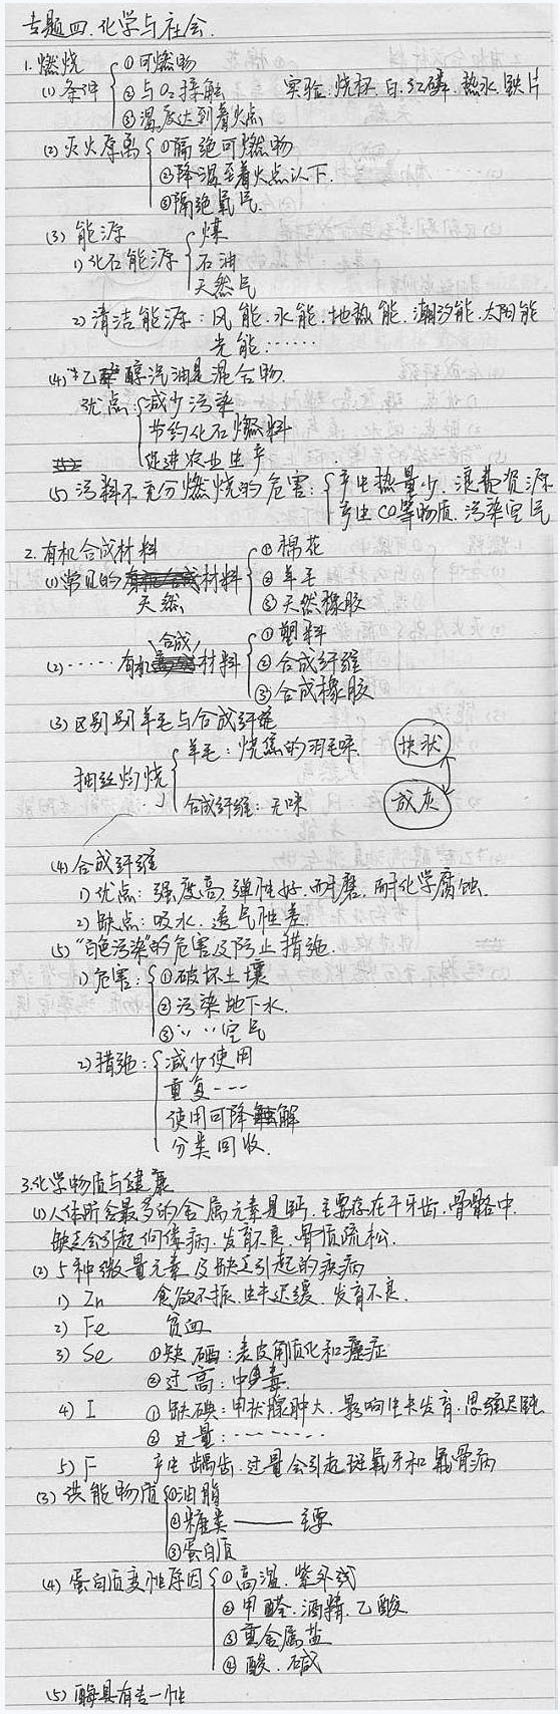 专题四.化学与社会.
1.燃烧
(1)条件 ①可燃物
②与O₂接触 实验:烧杯.白.红磷.热水.铁片
③温度达到着火点
(2)灭火原离 ①隔绝可燃物
②降温至着火点以下.
③隔绝氧气.
(3)能源
1)化石能源 煤
石油
天然气
2)清洁能源:风能.水能.地热能.潮汐能.太阳能
光能……
(4)乙醇汽油是混合物.
优点:减少污染
节约化石燃料
促进农业生产
(5)污料不充分燃烧的危害:产生热量少.浪费资源
产生CO等物质.污染空气
2.有机合成材料
(1)常见的天然材料 ①棉花
②羊毛
③天然橡胶
(2)……有机合成材料 ①塑料
②合成纤维
③合成橡胶
(3)区别别羊毛与合成纤维
抽丝灼烧 羊毛:烧焦的羽毛味. 块状
合成纤维:无味 成灰
(4)合成纤维
1)优点:强度高.弹性好.耐磨.耐化学腐蚀.
2)缺点:吸水.透气性差.
(5)"白色污染"的危害及防止措施.
1)危害:①破坏土壤
②污染地下水.
③〃〃空气
2)措施:减少使用
重复---
使用可降解
分类回收.
3.化学物质与健康
(1)人体所含最多的金属元素是钙.主要存在于牙齿.骨骼中.
缺乏会引起佝偻病.发育不良.骨质疏松.
(2)5种微量元素及缺乏引起的疾病
1)Zn 食欲不振.生长迟缓.发育不良.
2)Fe 贫血
3)Se ①缺硒:表皮角质化和癌症
②过高:中毒.
4)I ①缺碘:甲状腺肿大.影响生长发育.思维迟钝
②过量:…………
5)F 产生龋齿.过量会引起斑氟牙和氟骨病
(3)供能物质 ①油脂
②糖类——主要
③蛋白质
(4)蛋白质变性原因 ①高温.紫外线
②甲醛.酒精.乙酸
③重金属盐
④酸.碱
(5)酶具有专一性